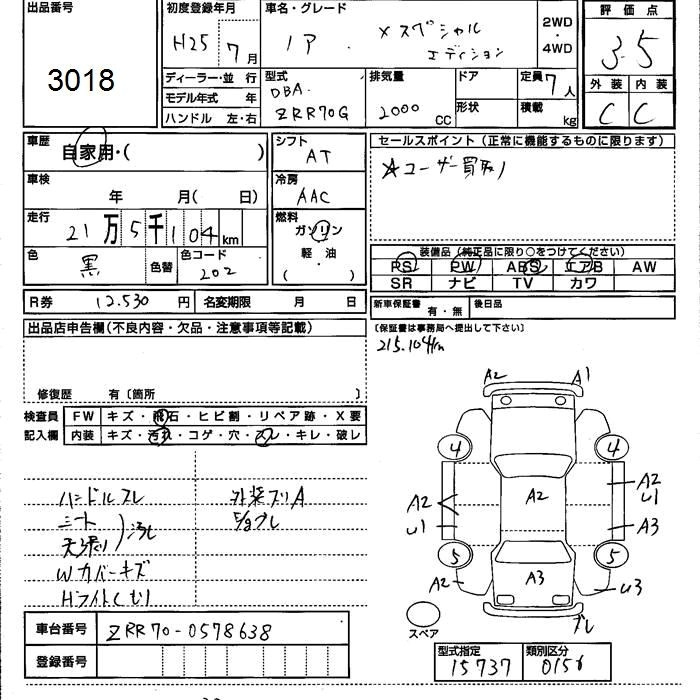 出品番号
3018
初度登録年月
H25 7月
車名・グレード
ノア Xスペシャル
エディション
2WD
・
4WD
評価点
3.5
外装 内装
C C
ディーラー・並行
モデル年式 年
ハンドル 左・右
型式
DBA-
ZRR70G
排気量
2000 CC
ドア
形状
定員 7人
積載 kg
車歴
自家用・( )
車検
年 月( 日)
走行
21万5千104km
色
黒
色替
色コード
202
シフト
AT
冷房
AAC
燃料
ガソリン
・
軽油
( )
セールスポイント(正常に機能するものに限ります)
☆ユーザー買取!
装備品(純正品に限り○をつけてください)
PS PW ABS エアB AW
SR ナビ TV カワ
R券 12.530円 名変期限 月 日
新車保証書 有・無 後日品
(保証書は事務局へ提出して下さい)
215.104km
出品店申告欄(不良内容・欠品・注意事項等記載)
修復歴 有〔箇所 〕
検査員
記入欄
FW キズ・飛石・ヒビ割・リペア跡・X要
内装 キズ・汚れ・コゲ・穴・スレ・キレ・破レ
ハンドルスレ
シート
天張り
汚れ
Wカバーキズ
Hライトくもり
外装 A
A2 A1
4 4
A2
A2
U1
A2
U1
A3
5 5
A2
A3
U3
スペア
車台番号 ZRR70-0578638
登録番号
型式指定 類別区分
15737 0156